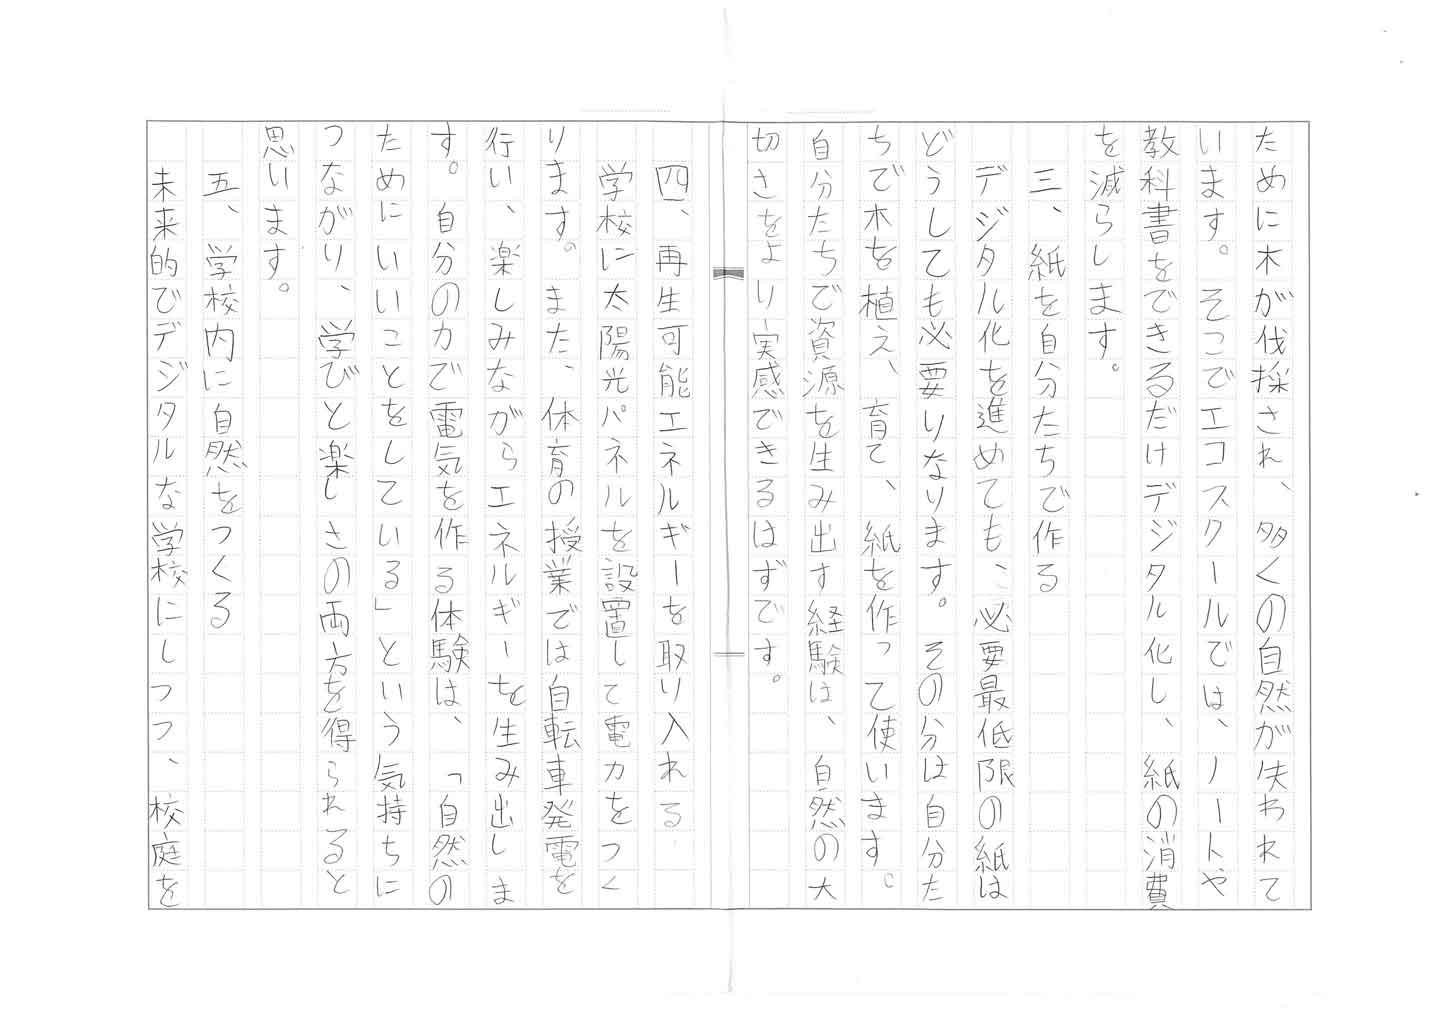 ために木が伐採され、多くの自然が失われて
います。そこでエコスクールでは、ノートや
教科書をできるだけデジタル化し、紙の消費
を減らします。
三、紙を自分たちで作る
デジタル化を進めても、必要最低限の紙は
どうしても必要りなります。その分は自分た
ちで木を植え、育て、紙を作って使います。
自分たちで資源を生み出す経験は、自然の大
切さをより実感できるはずです。
四、再生可能エネルギーを取り入れる
学校に太陽光パネルを設置して電力をつく
ります。また、体育の授業では自転車発電を
行い、楽しみながらエネルギーを生み出しま
す。自分の力で電気を作る体験は、「自然の
ためにいいことをしている」という気持ちに
つながり、学びと楽しさの両方を得られると
思います。
五、学校内に自然をつくる
未来的びデジタルな学校にしつつ、校庭を